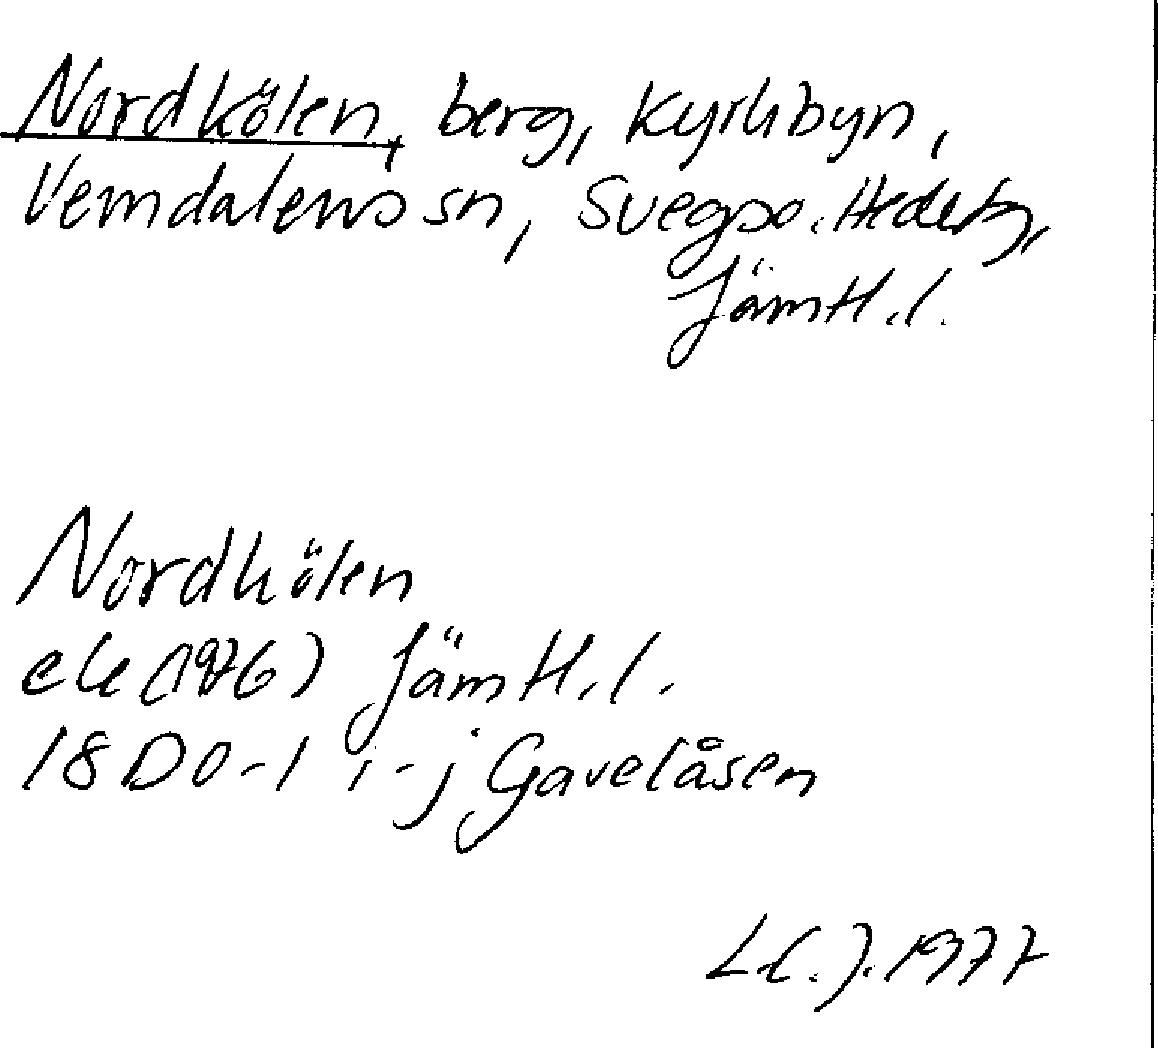 Nordkölen, berg, Kyrkbyn,
Vemdalens sn, Svegs o. Hede tg,
Jämtl. l.
Nordkölen
ek (1976) Jämtl. l.
18D 0-1 i-j Gavelåsen
1977